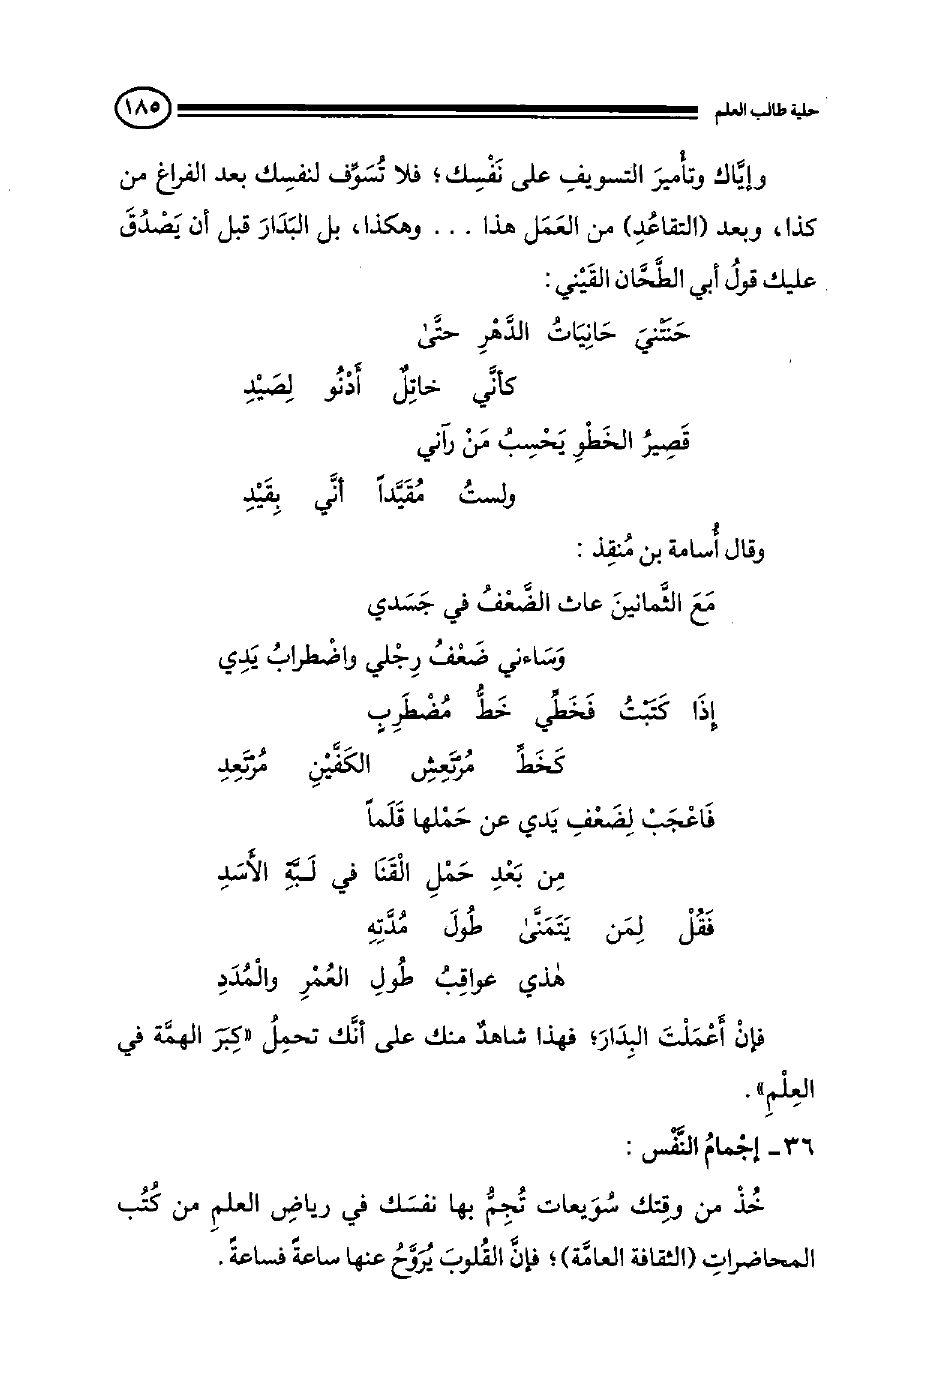 حلية طالب العلم ١٨٥
وإيَّاك وتأميرَ التسويفِ على نَفْسِك؛ فلا تُسَوِّف لنفسِك بعد الفراغِ من
كذا، وبعد (التقاعُدِ) من العَمَل هذا . . . وهكذا، بل البَدَارَ قبل أن يَصْدُقَ
عليك قولُ أبي الطَّحَّان القَيْني:
حَنَتْنيَ حَانِيَاتُ الدَّهْرِ حتَّىٰ
كأنَّي خاتِلٌ أَدْنُو لِصَيْدِ
قَصِيرُ الخَطْوِ يَحْسِبُ مَنْ رآني
ولستُ مُقَيَّداً أنَّي بِقَيْدِ
وقال أُسامة بن مُنقِذ :
مَعَ الثَّمانينَ عاث الضَّعْفُ في جَسَدي
وَسَاءني ضَعْفُ رِجْلي واضْطرابُ يَدِي
إِذَا كَتَبْتُ فَخَطِّي خَطُّ مُضْطَرِبٍ
كَخَطِّ مُرْتَعِشِ الكَفَّيْنِ مُرْتَعِدِ
فَاعْجَبْ لِضَعْفِ يَدي عن حَمْلها قَلَماً
مِن بَعْدِ حَمْلِ الْقَنَا في لَبَّةِ الأَسَدِ
فَقُلْ لِمَن يَتَمَنَّىٰ طُولَ مُدَّتِهِ
هٰذي عواقِبُ طُولِ العُمْرِ والْمُدَدِ
فإنْ أَعْمَلْتَ البِدَارَ؛ فهذا شاهدٌ منك على أنَّك تحمِلُ «كِبَرَ الهمَّة في
العِلْمِ» .
٣٦ـ إجْمامُ النَّفْس :
خُذْ من وقتِك سُوَيعات تُجِمُّ بها نفسَك في رياضِ العلمِ من كُتُب
المحاضراتِ (الثقافة العامَّة)؛ فإنَّ القُلوبَ يُرَوَّحُ عنها ساعةً فساعةً .